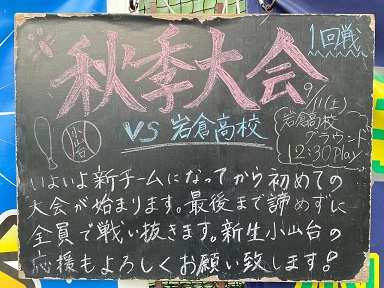 秋季大会
1回戦
VS 岩倉高校
小山台
9/11(土)
岩倉高校
グラウンド
12:30 play
いよいよ新チームになってから初めての
大会が始まります。最後まで諦めずに
全員で戦い抜きます。新生小山台の
応援もよろしくお願い致します!